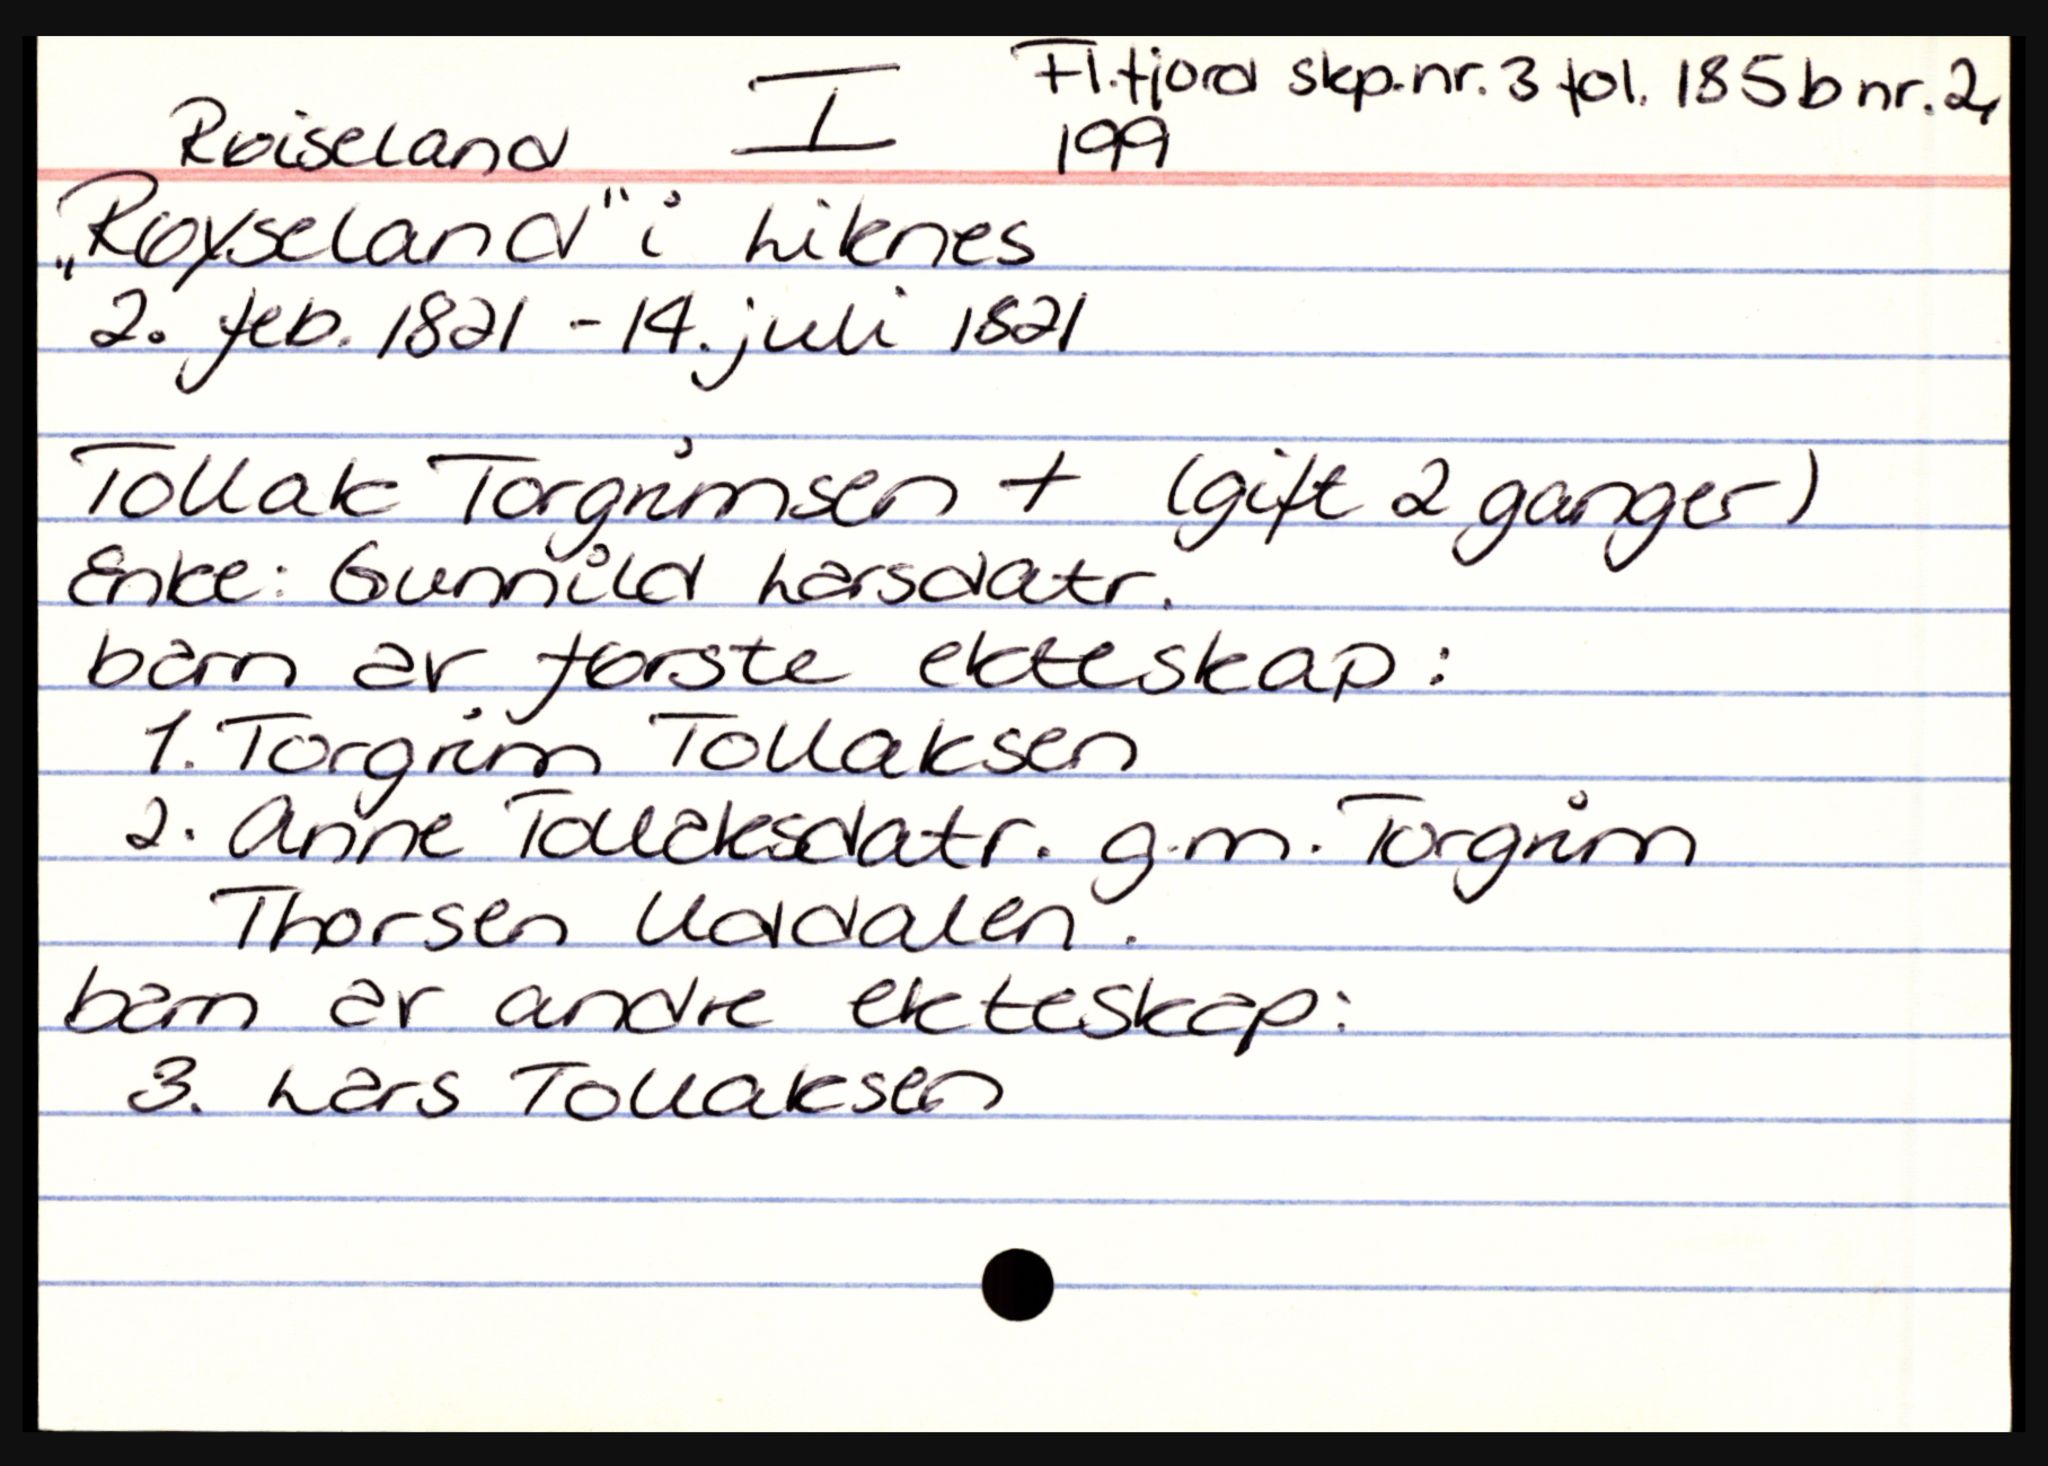 Røiseland I Fl.fjord skp.nr. 3 fol. 185b nr. 2,
199
„Røyseland“ i Liknes
2. feb. 1821 - 14. juli 1821
Tollak Torgrimsen + (gift 2 ganger)
Enke: Gunnild Larsdatr.
barn av første ekteskap:
1. Torgrim Tollaksen
2. Anne Tollaksdatr. g.m. Torgrim
Thorsen Uddalen.
barn av andre ekteskap:
3. Lars Tollaksen